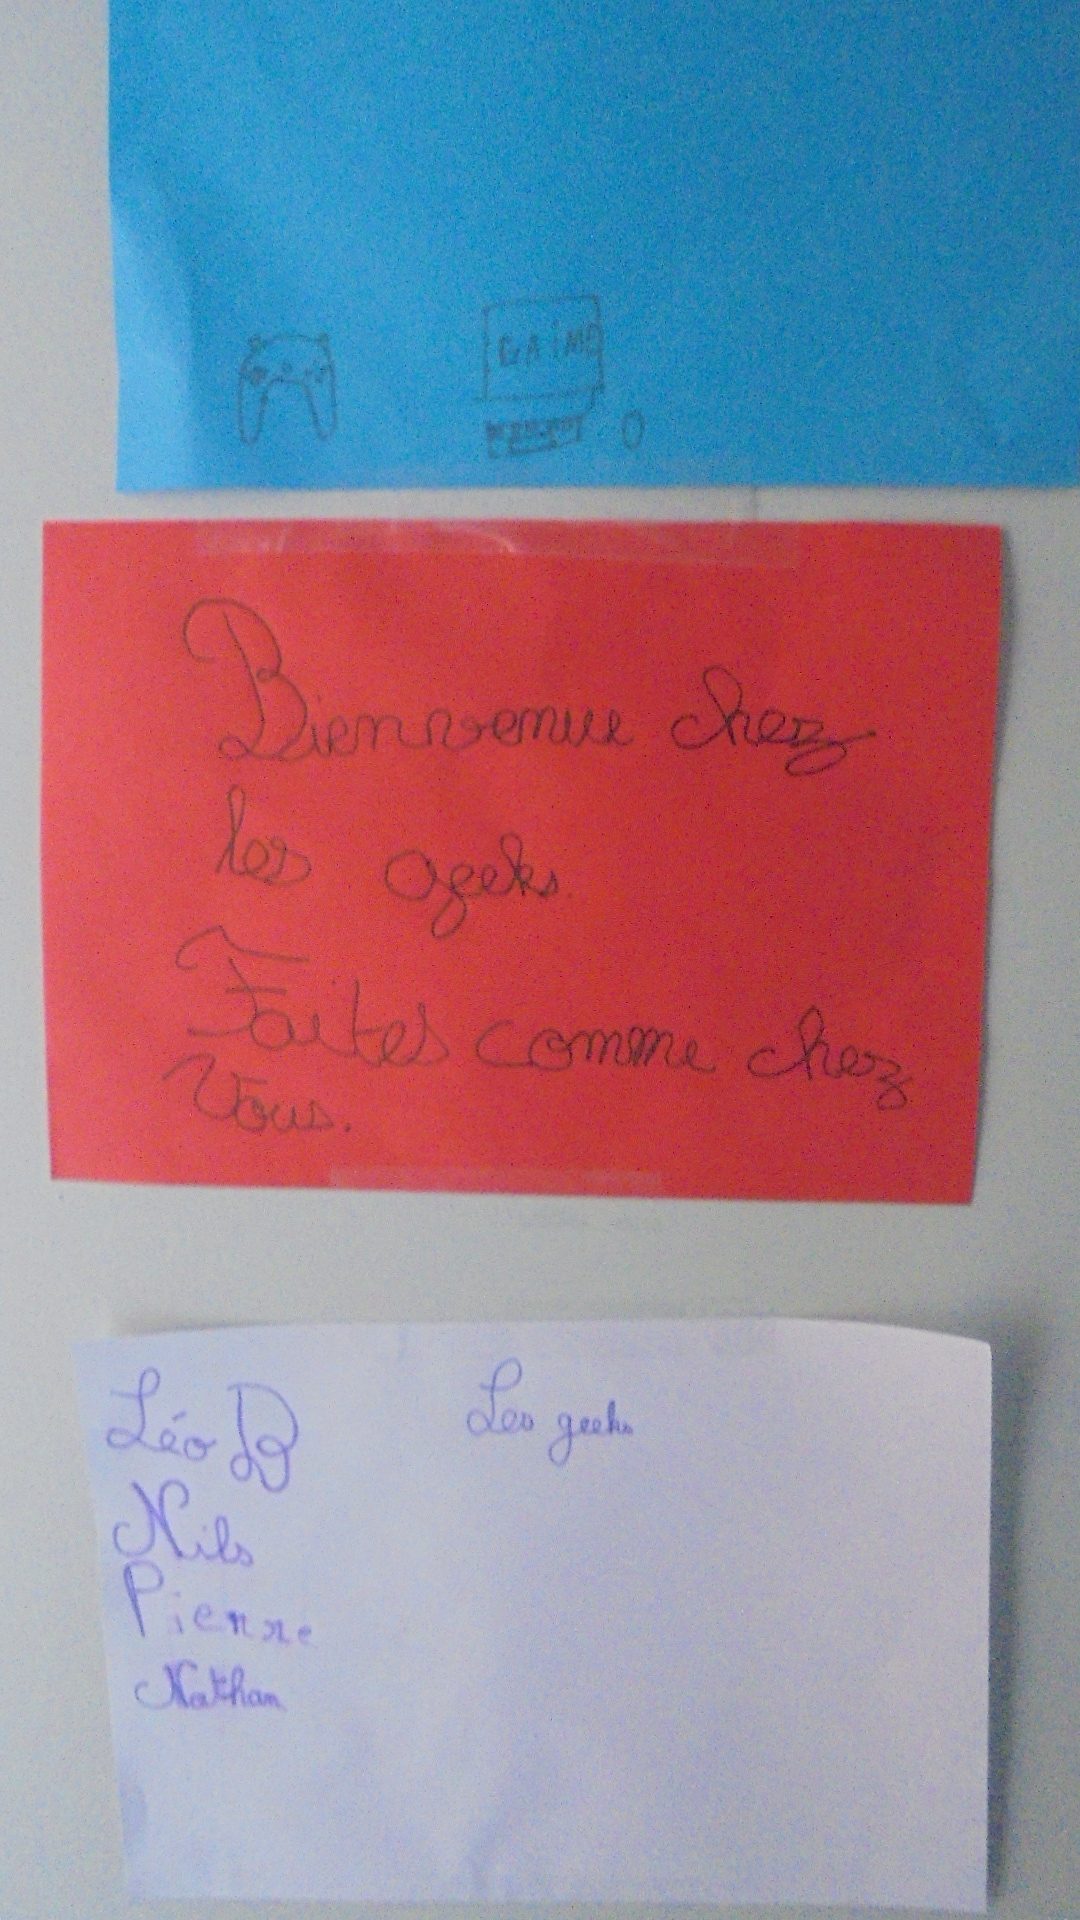 GAIME
Bienvenue chez
les geeks.
Faites comme chez
Vous.
Léo B Les geeks
Nils
Pierre
Nathan